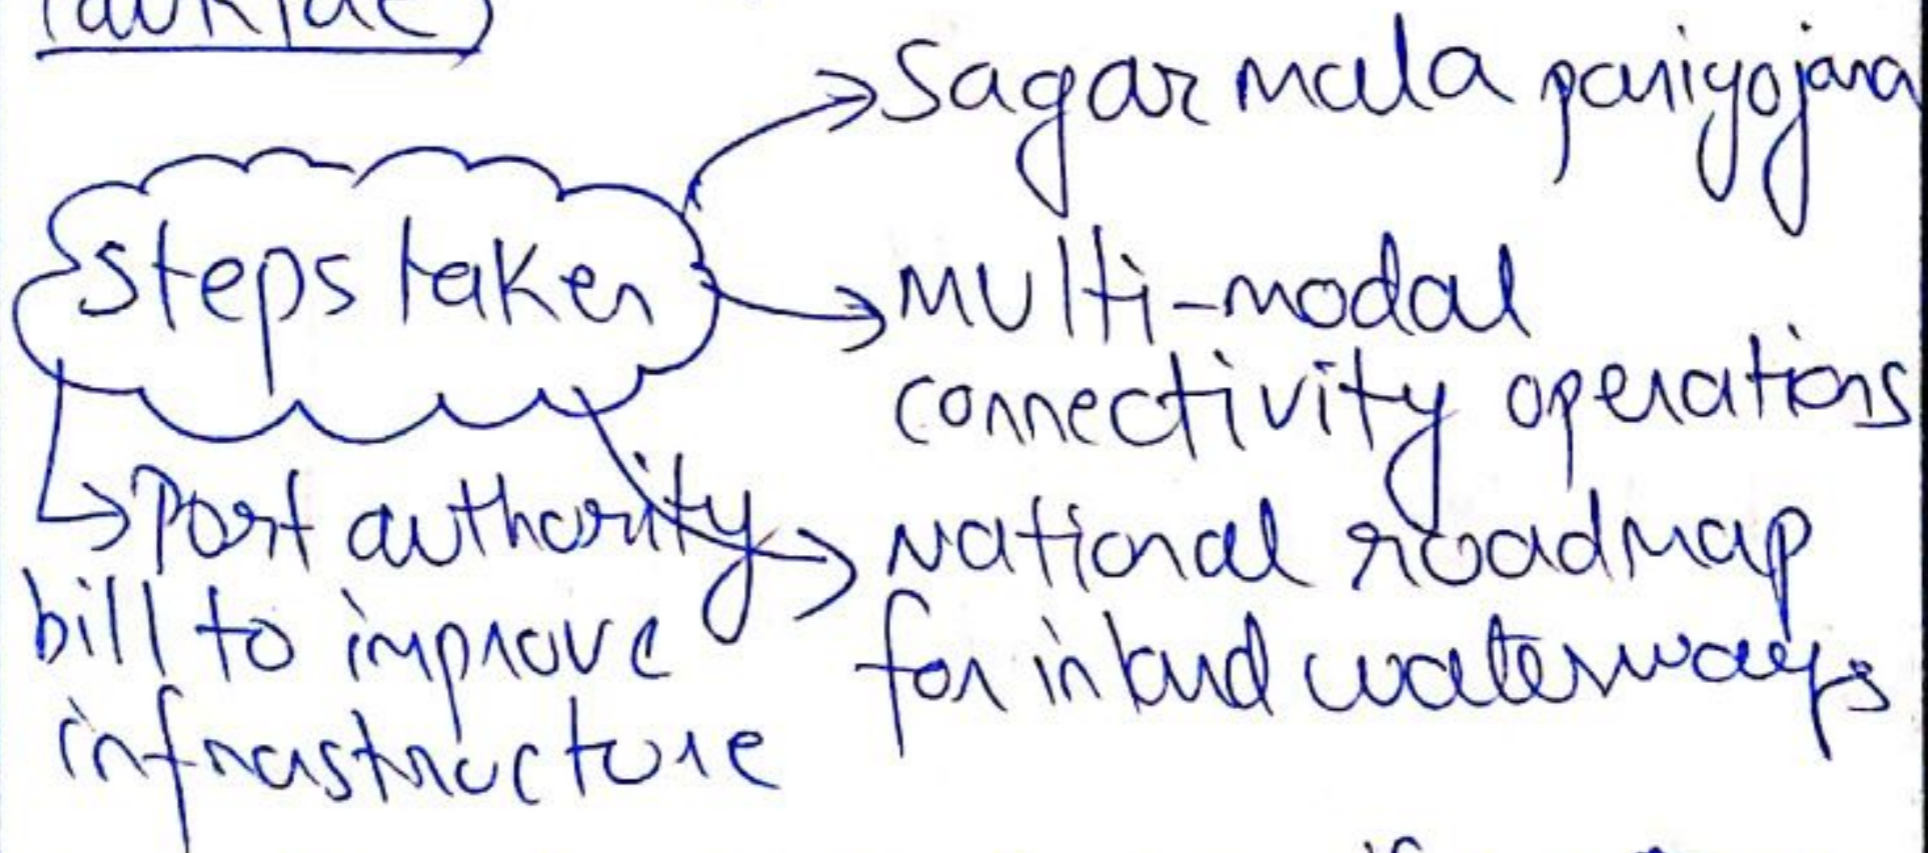 Steps taken
→ Sagarmala pariyojana
→ Multi-modal
connectivity operations
→ National roadmap
for inland waterways
→ Port authority
bill to improve
infrastructure